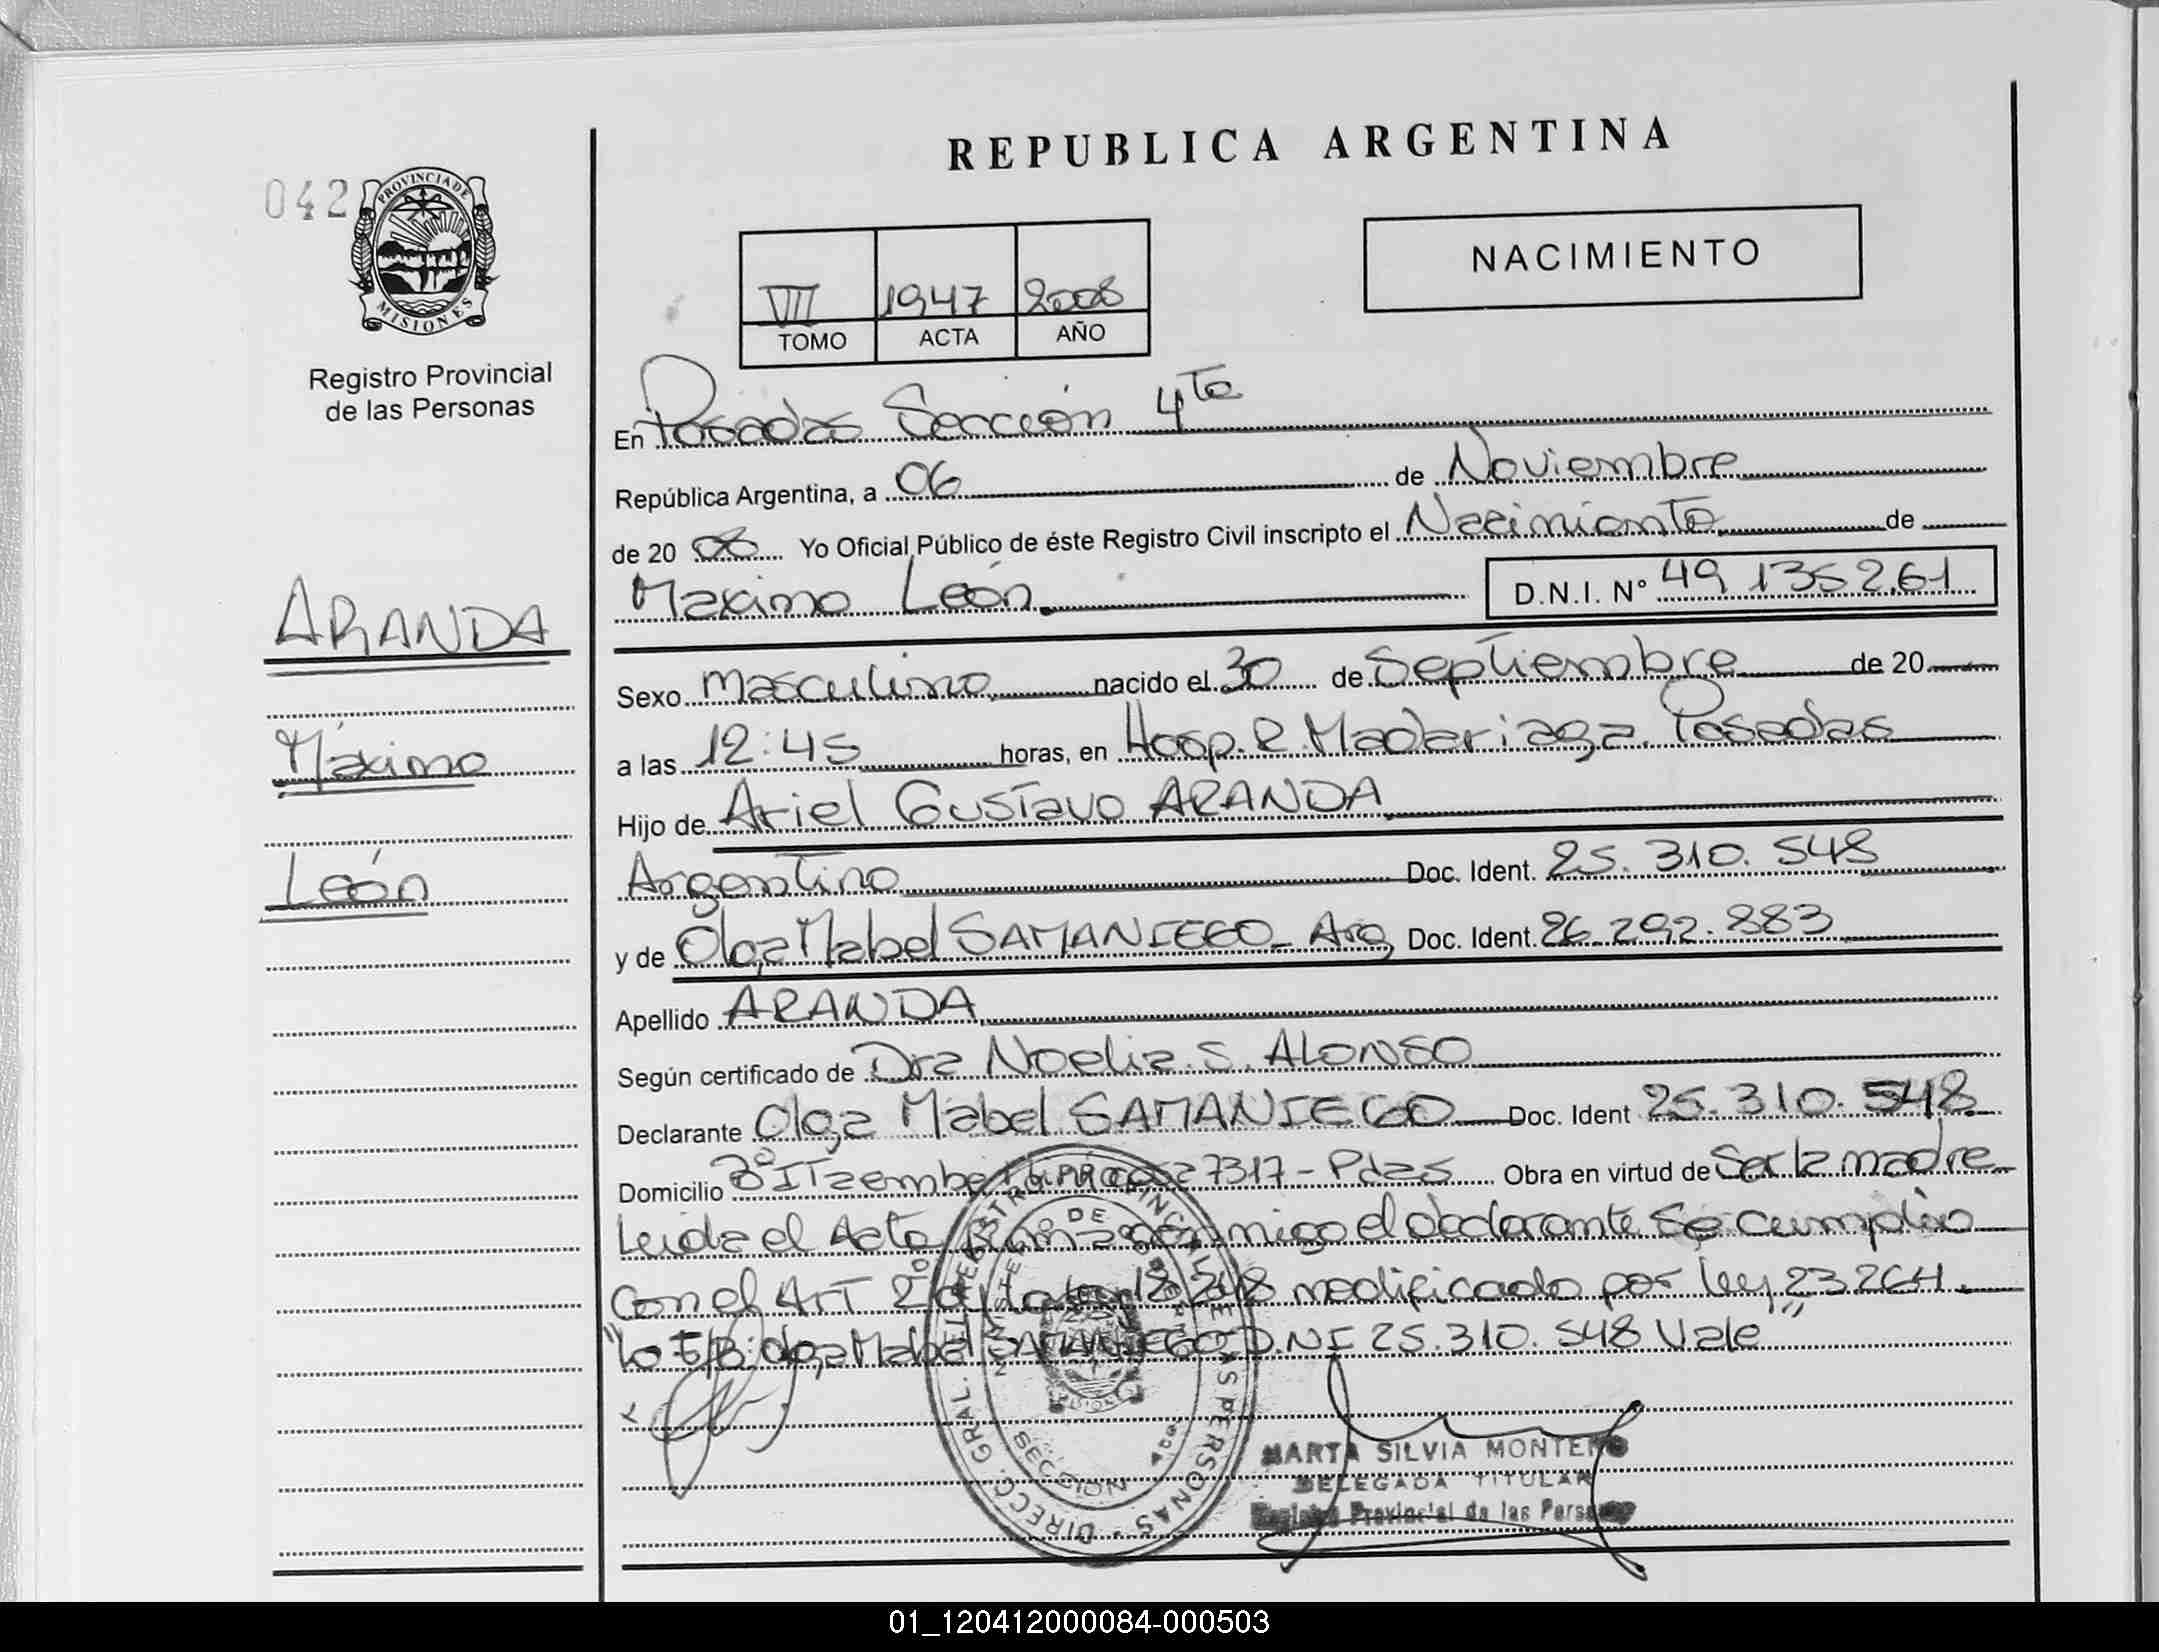 REPUBLICA ARGENTINA
042
PROVINCIA DE
MISIONES
Registro Provincial
de las Personas
NACIMIENTO
VII 1947 2008
TOMO ACTA AÑO
En Posadas Sección 4ta
República Argentina, a 06 de Noviembre
de 20 08 Yo Oficial Público de éste Registro Civil inscripto el Nacimiento de
Maximo León D.N.I. Nº 49 135 261
ARANDA
Máximo
León
Sexo masculino nacido el 30 de Septiembre de 20
a las 12:45 horas, en Hosp. R. Madariaga. Posadas
Hijo de Ariel Gustavo ARANDA
Argentino Doc. Ident. 25.310.548
y de Olga Mabel SAMANIEGO - Arg Doc. Ident. 26.292.883
Apellido ARANDA
Según certificado de Dra Noelia. S. ALONSO
Declarante Olga Mabel SAMANIEGO Doc. Ident 25.310.548
Domicilio 7317 - Pdas Obra en virtud de Ser la madre
Leida el Acta el declarante Se cumplio
Con el ArT 2º 18.248 modificado por ley 23264.
"lo E/B: Olga Mabel SAMANIEGO D.NI 25.310.548 Vale"
DIRECC. GRAL. DEL REGISTRO PROVINCIAL DE LAS PERSONAS
MINISTERIO DE
SECCION
MARTA SILVIA MONTERO
DELEGADA TITULAR
Registro Provincial de las Personas
01_120412000084-000503